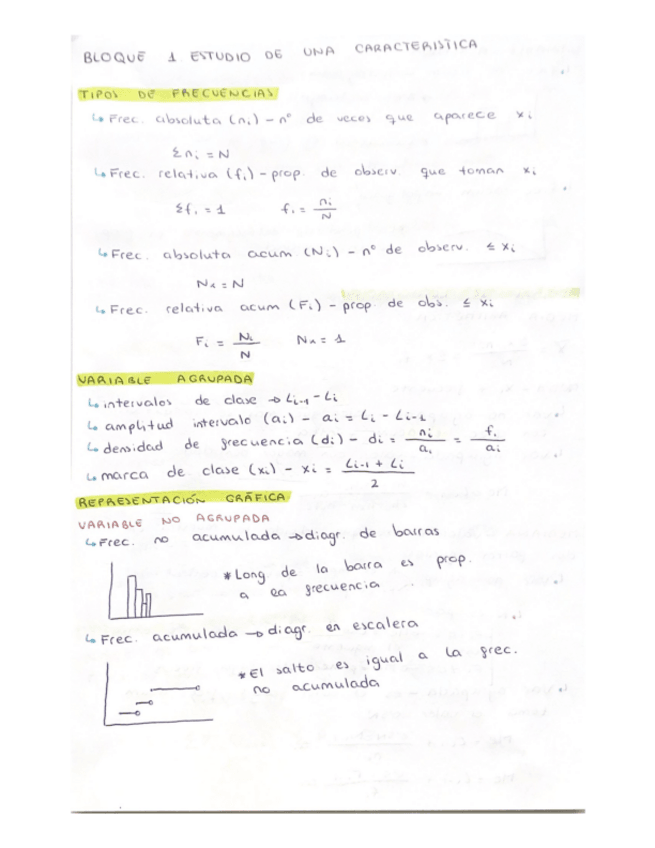 BLOQUE 1 ESTUDIO DE UNA CARACTERISTICA
TIPOS DE FRECUENCIAS
↳ Frec. absoluta (ni) – nº de veces que aparece xi
Σni = N
↳ Frec. relativa (fi) – prop. de observ. que toman xi
Σfi = 1 fi = ni/N
↳ Frec. absoluta acum (Ni) – nº de observ. ≤ xi
Nk = N
↳ Frec. relativa acum (Fi) – prop. de obs. ≤ xi
Fi = Ni/N Nk = 1
VARIABLE AGRUPADA
↳ intervalos de clase → Li-1 - Li
↳ amplitud intervalo (ai) – ai = Li - Li-1
↳ densidad de frecuencia (di) – di = ni/ai = fi/ai
↳ marca de clase (xi) – xi = Li-1 + Li / 2
REPRESENTACIÓN GRÁFICA
VARIABLE NO AGRUPADA
↳ Frec. no acumulada → diagr. de barras
* Long de la barra es prop.
a la frecuencia
↳ Frec. acumulada → diagr. en escalera
* El salto es igual a la frec.
no acumulada